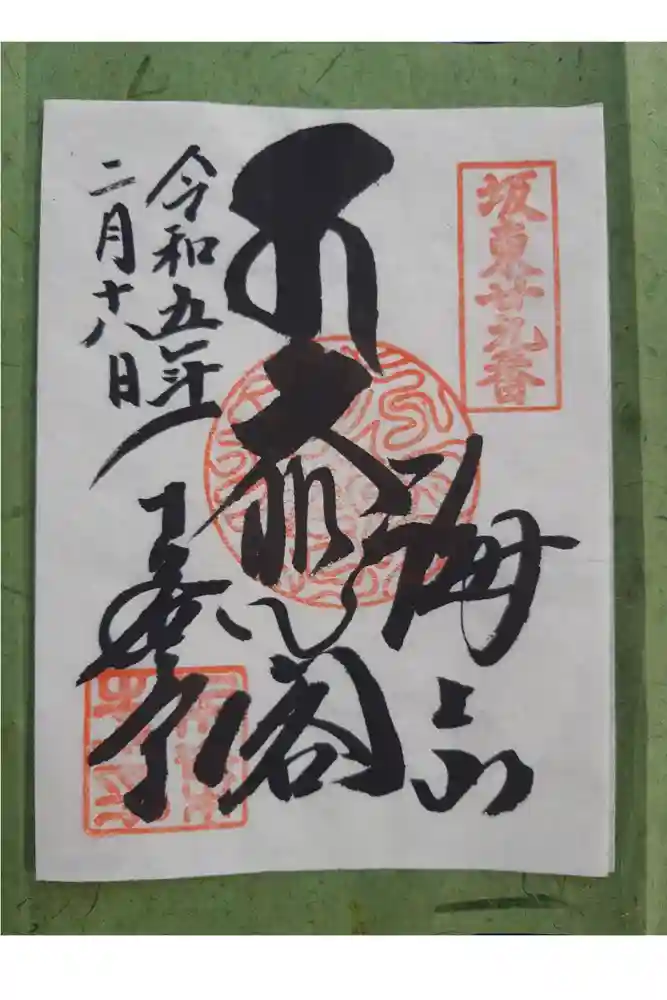 坂東廿九番
海上山
大悲閣
令和五年
二月十八日
千葉寺